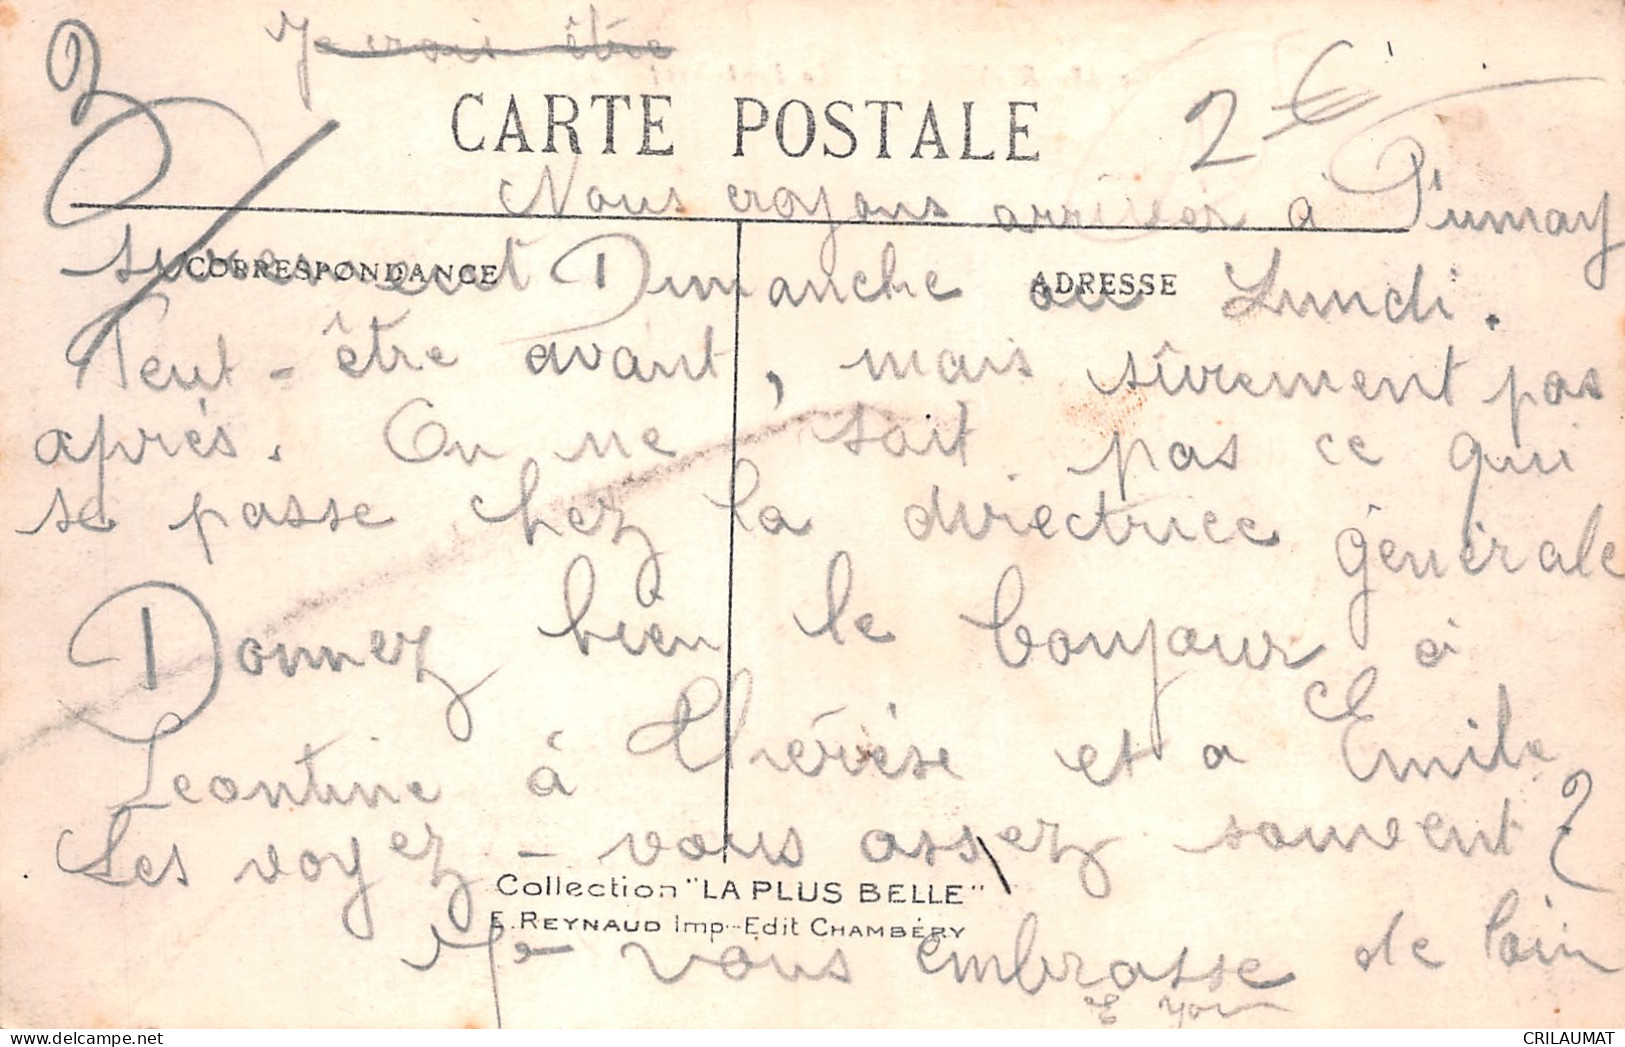 3
Je crois être
2 €
CARTE POSTALE
Nous croyons arriver à
CORRESPONDANCE
ADRESSE
surement Dimanche ou Lundi.
Peut-être avant, mais sûrement pas
après. On ne sait pas ce qui
se passe chez la directrice générale
Donnez bien le bonjour à
Leontine à Thérèse et a Emile
Les voyez-vous assez souvent ?
Collection "LA PLUS BELLE"
E. REYNAUD Imp-Edit CHAMBÉRY
Je vous embrasse de loin
CRILAUMAT